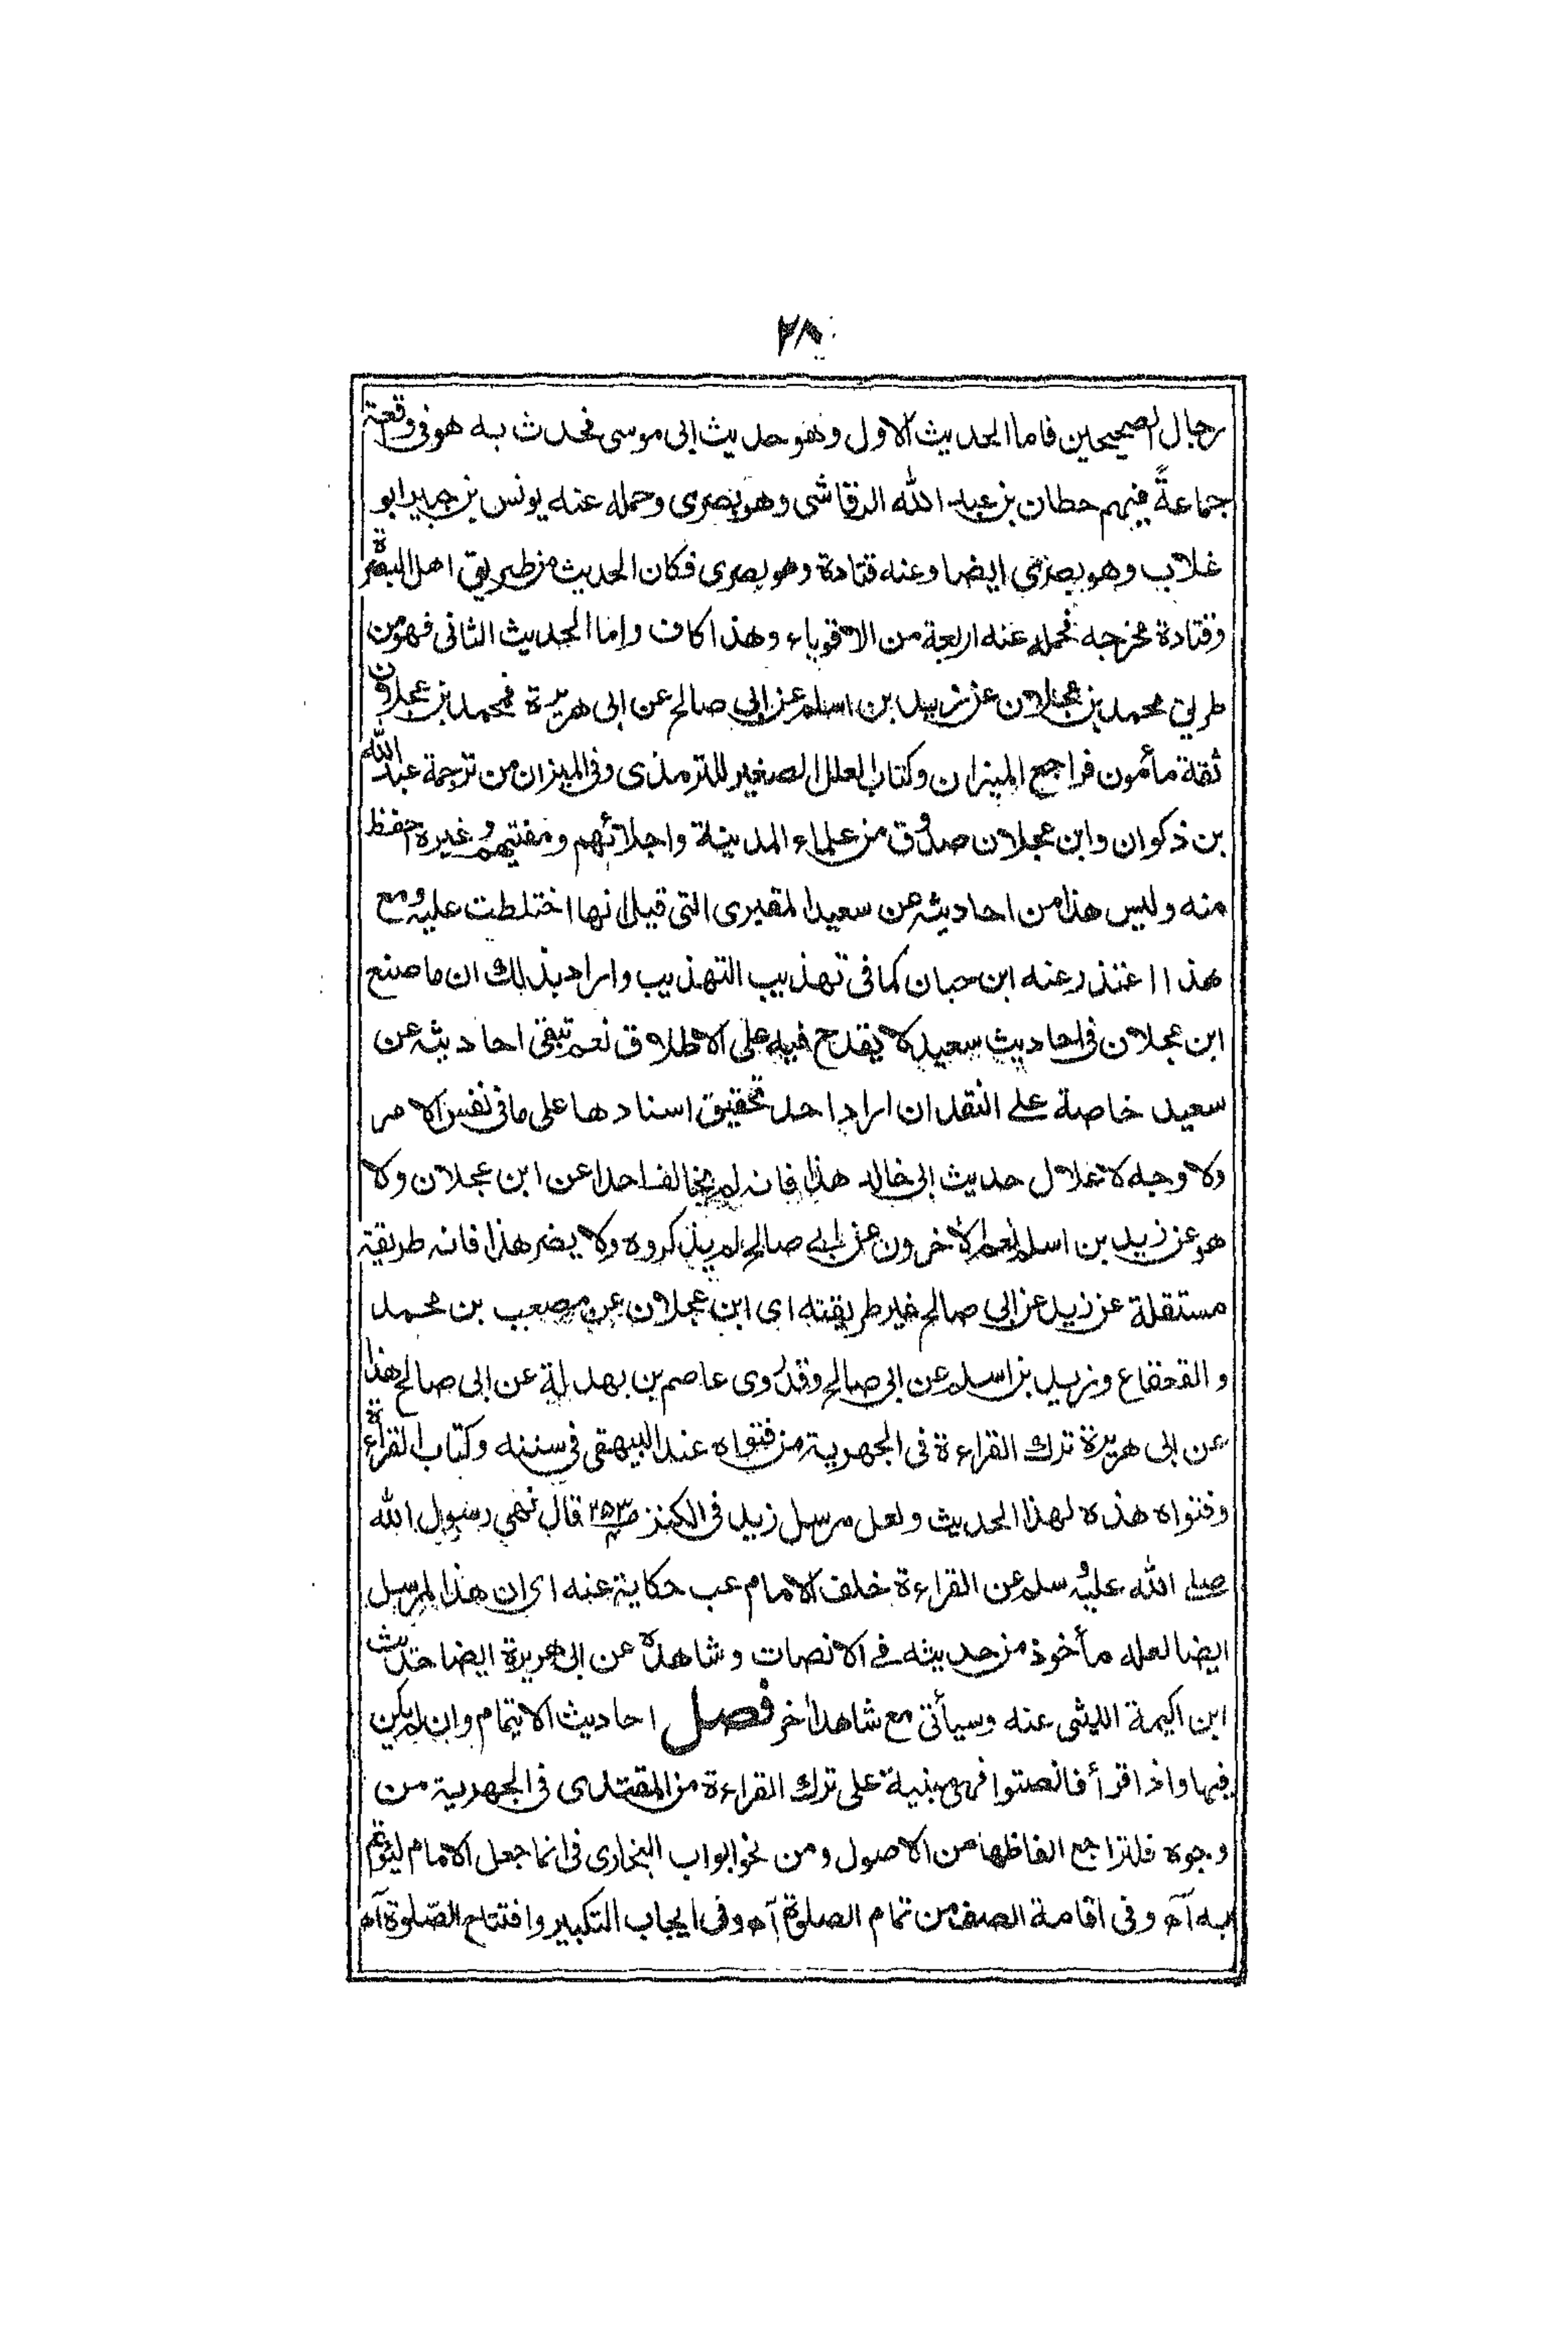 ٢٨
رجال الصحيحين فاما الحديث الاول وهو حديث ابى موسى فحدث به هو فى وقعة
جماعةً فيهم حطان بن عبد الله الرقاشى وهو بصرى وحمله عنه يونس بن جبير ابو
غلاب وهو بصرى ايضا وعنه قتادة وهو بصرى فكان الحديث من طريق اهل البصرة
وقتادة مخرجه فحمله عنه اربعة من الاقوياء وهذا كاف واما الحديث الثانى فهو من
طريق محمد بن عجلان عن زيد بن اسلم عن ابى صالح عن ابى هريرة فمحمد بن عجلان
ثقة مأمون فراجع الميزان وكتاب العلل الصغير للترمذى وفى الميزان من ترجمة عبد الله
بن ذكوان وابن عجلان صدوق من علماء المدينة واجلائهم ومفتيهم وغيره احفظ
منه وليس هذا من احاديثه عن سعيد المقبرى التى قيل انها اختلطت عليه ومع
هذا اعتذر عنه ابن حبان كما فى تهذيب التهذيب واراد بذلك ان ما صنع
ابن عجلان فى احاديث سعيد لا يقدح فيه على الاطلاق نعم تبقى احاديثه عن
سعيد خاصة على النقد ان اراد احد تحقيق اسنادها على ما فى نفس الامر
ولا وجه لاعلال حديث ابى خالد هذا فانه لم يخالف احدا عن ابن عجلان ولا
هو عن زيد بن اسلم نعم الاخرون عن ابى صالح لم يذكروه ولا يضر هذا فانه طريقة
مستقلة عن زيد عن ابى صالح غير طريقته اى ابن عجلان عن مصعب بن محمد
والقعقاع وزيد بن اسلم عن ابى صالح وقد روى عاصم بن بهدلة عن ابى صالح هذا
عن ابى هريرة ترك القراءة فى الجهرية من فتواه عند البيهقى فى سننه وكتاب القراءة
وفتواه هذه لهذا الحديث ولعل مرسل زيد فى الكنز ص٢٥٣ قال نهى رسول الله
صلى الله عليه وسلم عن القراءة خلف الامام عب حكاية عنه اى ان هذا المرسل
ايضا لعله مأخوذ من حديثه فى الانصات وشاهده عن ابى هريرة ايضا حديث
ابن اكيمة الليثى عنه وسيأتى مع شاهد اخر فصل احاديث الايتمام وان لم يكن
فيها واذا قرأ فانصتوا فهى مبنية على ترك القراءة من المقتدى فى الجهرية من
وجوه فلتراجع الفاظها من الاصول ومن نحو ابواب البخارى فى انما جعل الامام ليؤتم
به آه وفى اقامة الصف من تمام الصلوة آه وفى ايجاب التكبير وافتتاح الصلوة آه